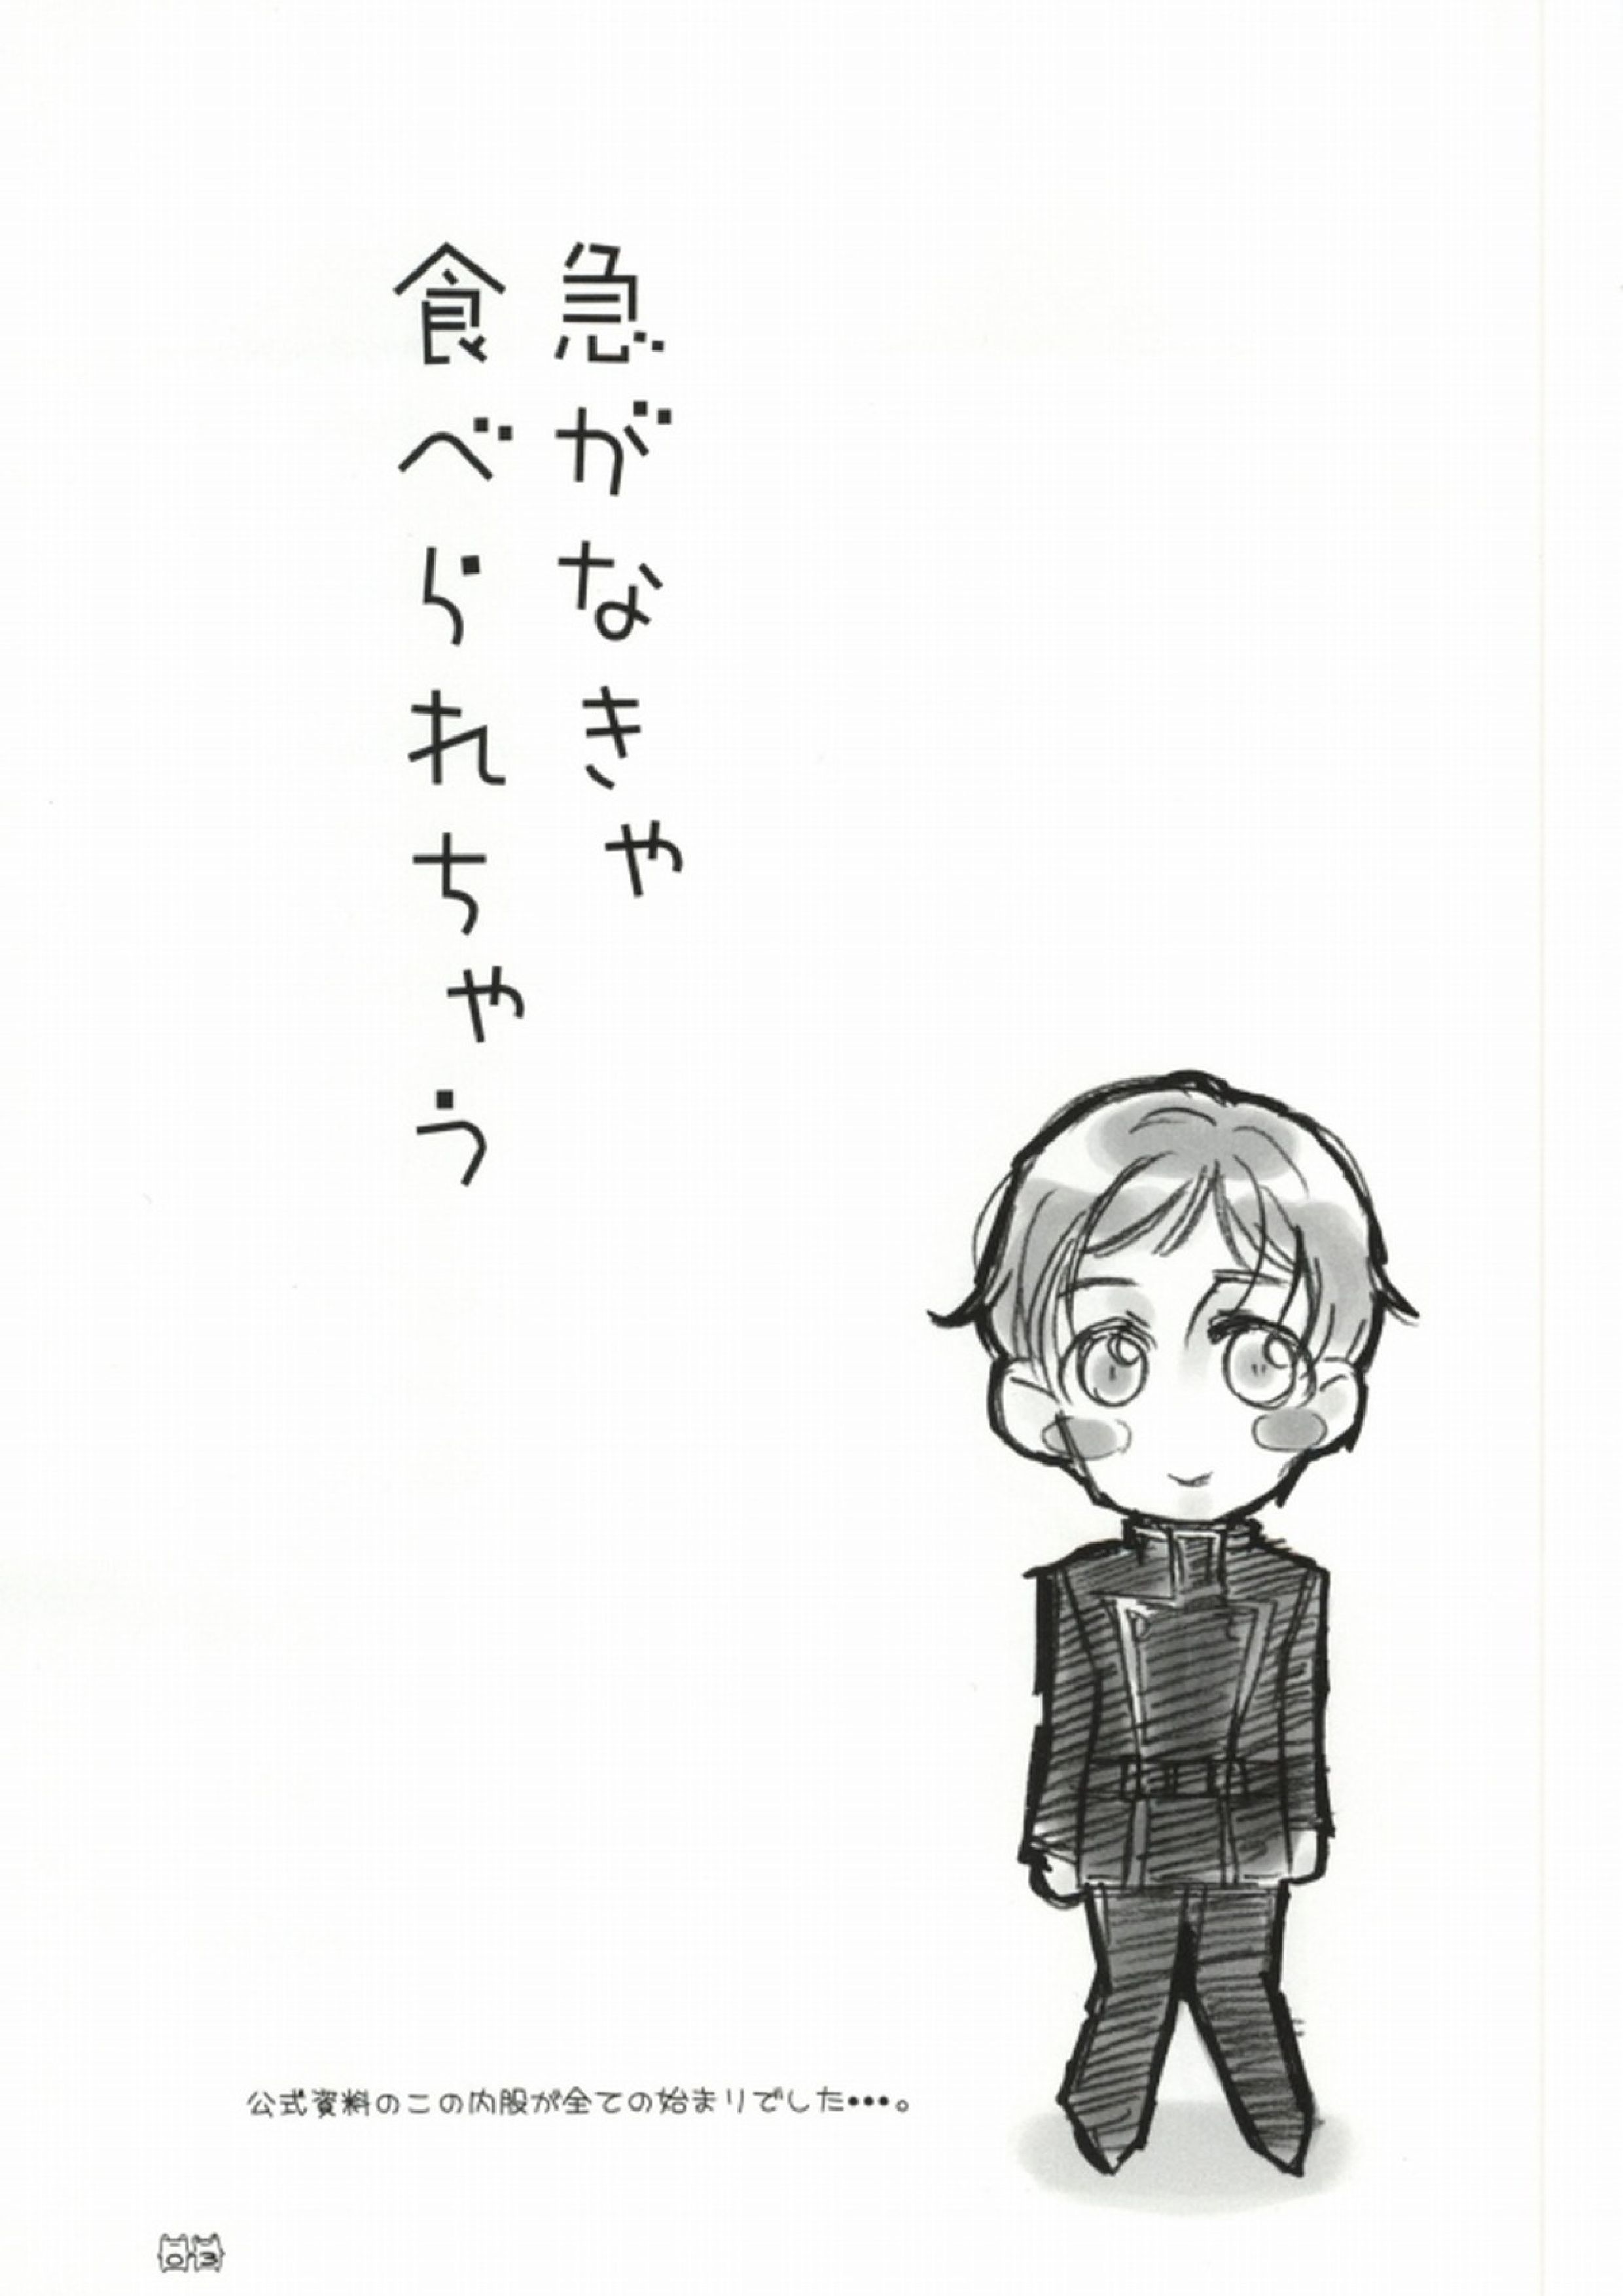 急がなきゃ
食べられちゃう
公式資料のこの内股が全ての始まりでした•••。
03